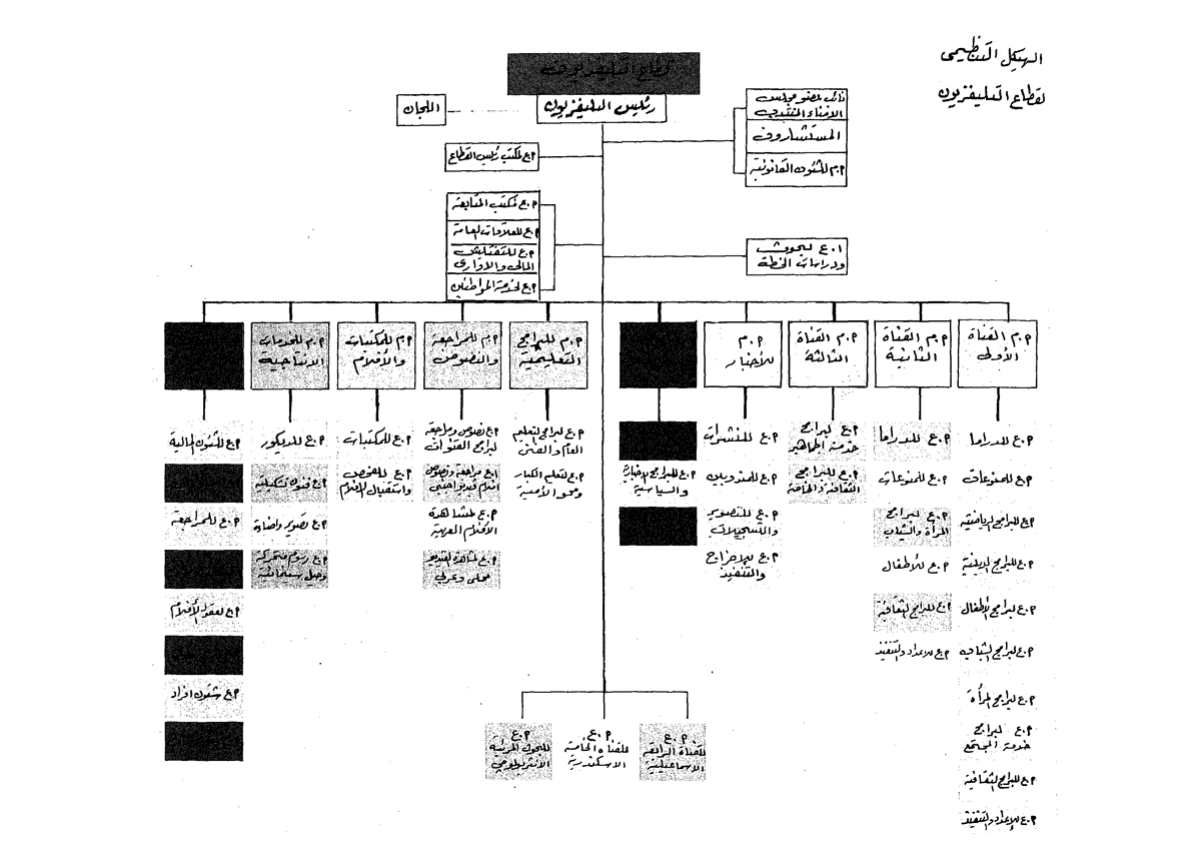 الهيكل التنظيمى
لقطاع التليفزيون
قطاع التليفزيون
رئيس التليفزيون
اللجان
نائب لعضو مجلس
الامناء المنتدب
المستشارون
م.م للشئون القانونية
م.ع لمكتب رئيس القطاع
م.ع لمكتب المتابعة
م.ع للعلاقات العامة
م.ع للتفتيش
المالى والادارى
م.ع لخدمة المواطنين
ا.ع لبحوث
ودراسات الخطة
م.م القناة
الأولى
م.م القناة
الثانية
م.م القناة
الثالثة
م.م
للأخبار
م.م للبرامج
التعليمية
م.م للمراجعة
والنصوص
م.م للمكتبات
والأفلام
م.م للخدمات
الانتاجية
م.ع للدراما
م.ع للمنوعات
م.ع للبرامج الرياضية
م.ع للبرامج الدينية
م.ع لبرامج الأطفال
م.ع لبرامج الشباب
م.ع لبرامج المرأة
م.ع لبرامج
خدمة المجتمع
م.ع للبرامج الثقافية
م.ع للإعداد والتنفيذ
م.ع للدراما
م.ع للمنوعات
م.ع لبرامج
المرأة والشباب
م.ع للأطفال
م.ع للبرامج الثقافية
م.ع للاعداد والتنفيذ
م.ع لبرامج
خدمة الجماهير
م.ع للبرامج
الثقافية والخاصة
م.ع للنشرات
م.ع للمندوبين
م.ع للتصوير
والتسجيلات
م.ع للاخراج
والتنفيذ
م.ع للبرامج الاخبارية
والسياسية
م.ع لبرامج لتعليم
العام والفنى
م.ع لتعليم الكبار
ومحو الأمية
م.ع نصوص ومراجعة
لبرامج القنوات
م.ع مراجعة ونصوص
افلام فيديو اجنبى
م.ع لمشاهدة
الأفلام العربية
م.ع لمشاهدة الفيديو
محلى وعربى
م.ع للمكتبات
م.ع للفحص
واستقبال الافلام
م.ع للديكور
م.ع فنون تشكيلية
م.ع تصوير واضاءة
م.ع رسوم متحركة
وحيل سينمائية
م.ع للشئون المالية
م.ع للمراجعة
م.ع لعقود الأفلام
م.ع شئون افراد
م.ع
للقناة الرابعة
الاسماعيلية
م.ع
للقناة الخامسة
الاسكندرية
م.ع
للبحوث المرئية
الانثربولوجي